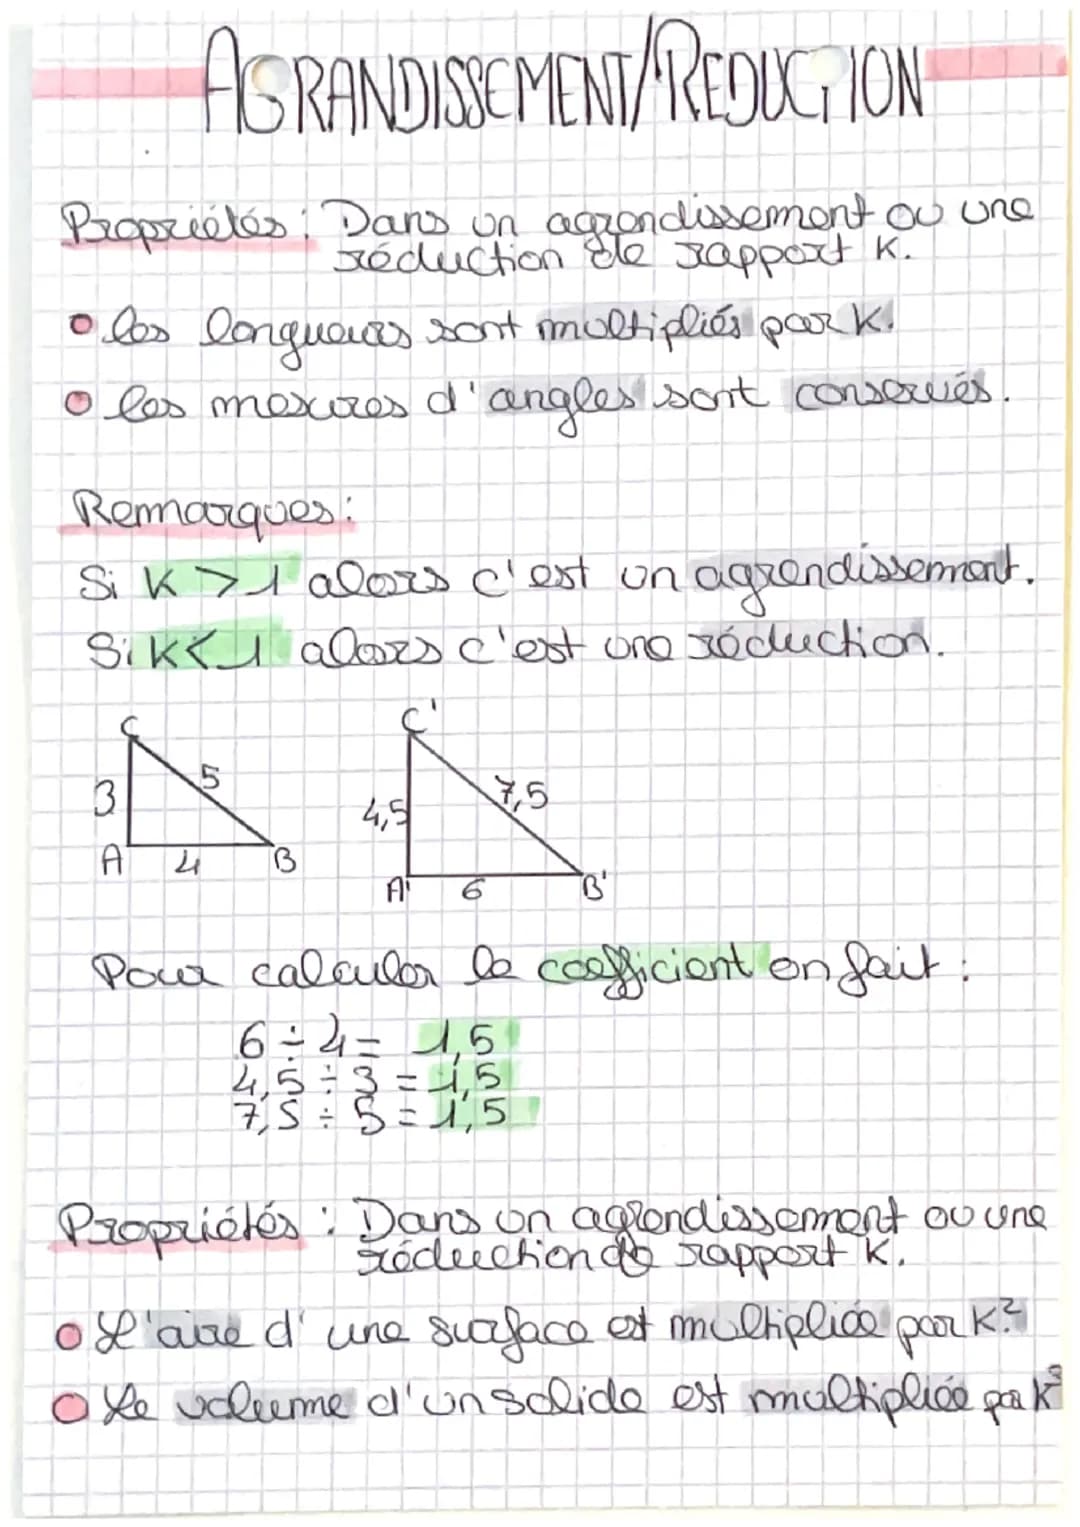 AGRANDISSEMENT/REDUCTION
Propriétés : Dans un agrandissement ou une
réduction de rapport K.
les longueurs sont multipliés par K.
les mesures d'angles sont conservés.
Remarques :
Si K > 1 alors c'est un agrandissement.
Si K < 1 alors c'est une réduction.
C
C'
5
7,5
3
4,5
A
4
B
A'
6
B'
Pour calculer le coefficient on fait :
6 ÷ 4 = 1,5
4,5 ÷ 3 = 1,5
7,5 ÷ 5 = 1,5
Propriétés : Dans un agrandissement ou une
réduction de rapport K.
L'aire d'une surface est multipliée par K²
Le volume d'un solide est multipliée par K³